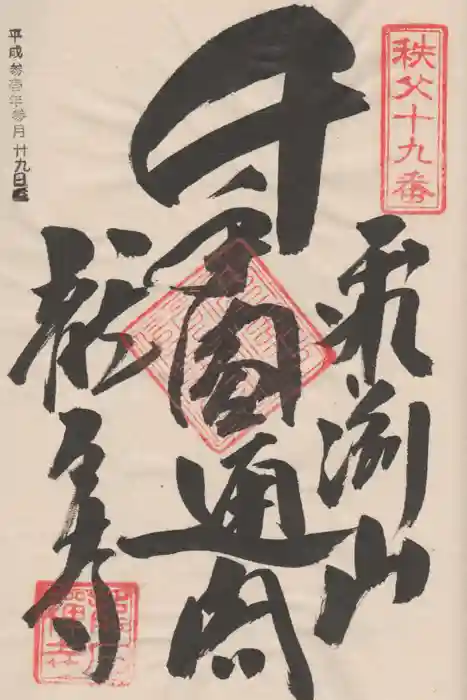 秩父十九番
飛淵山
千手
圓通閣
龍石寺
平成参壱年参月廿九日